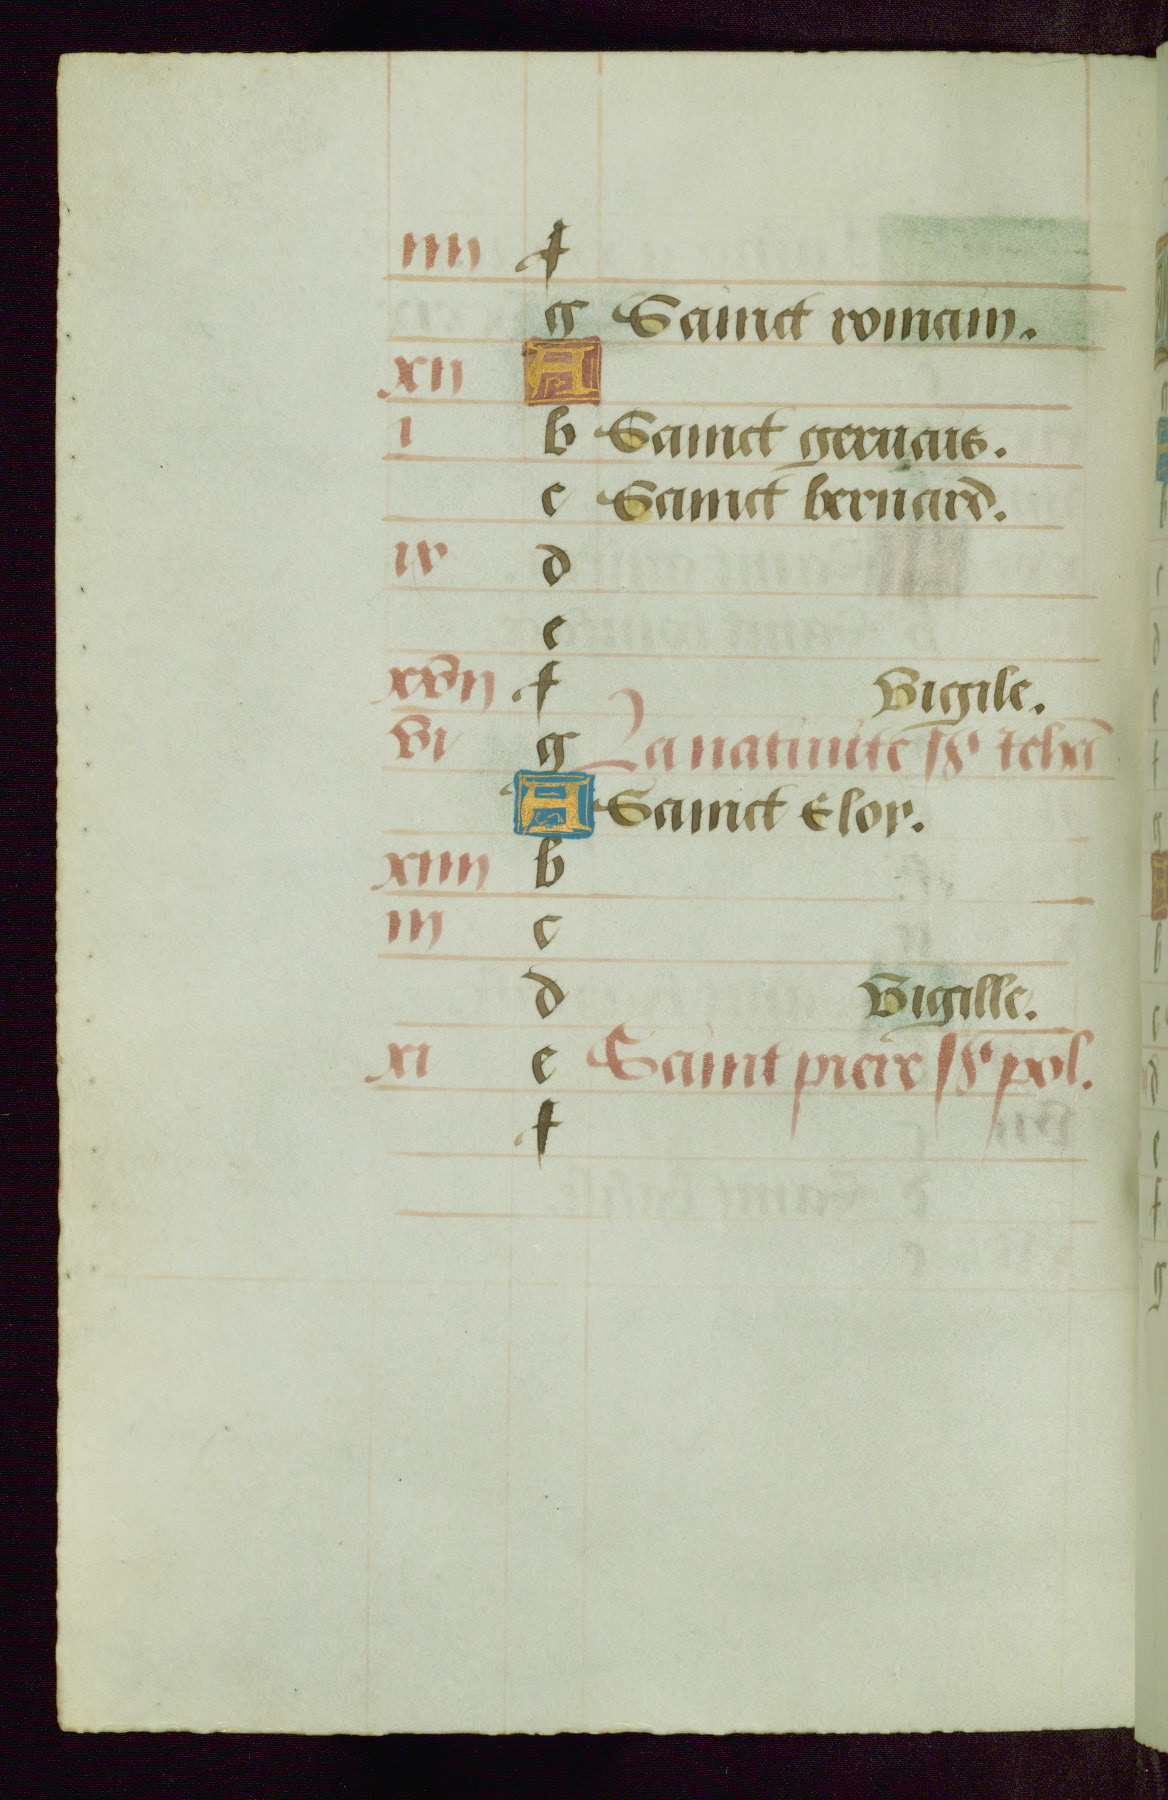 iiii f
g Sainct romain.
xii A
i b Sainct geruais.
c Sainct bernard.
ix d
e
xvii f Vigile.
vi g La natiuite st iehā
A Sainct Eloy.
xiiii b
iii c
d Vigille.
xi e Saint piere st pol.
f